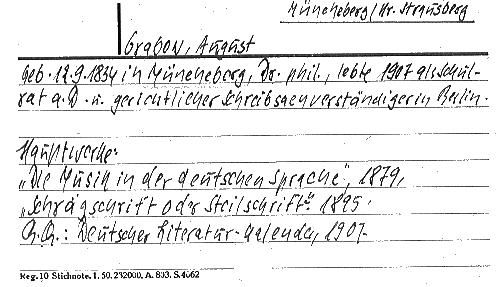 Müncheberg/Kr. Strausberg
Grabow, August
geb. 12.9.1834 in Müncheberg, Dr. phil., lebte 1907 als Schul-
rat a.D. u. gerichtlicher Schreibsachverständiger in Berlin.
Hauptwerke:
„Die Musik in der deutschen Sprache", 1879,
„Schrägschrift oder Steilschrift" 1895.
Qu.: Deutscher Literatur-Kalender, 1907.
Reg. 10 Stichnote. I. 50. 232000. A. 803. S. 4062